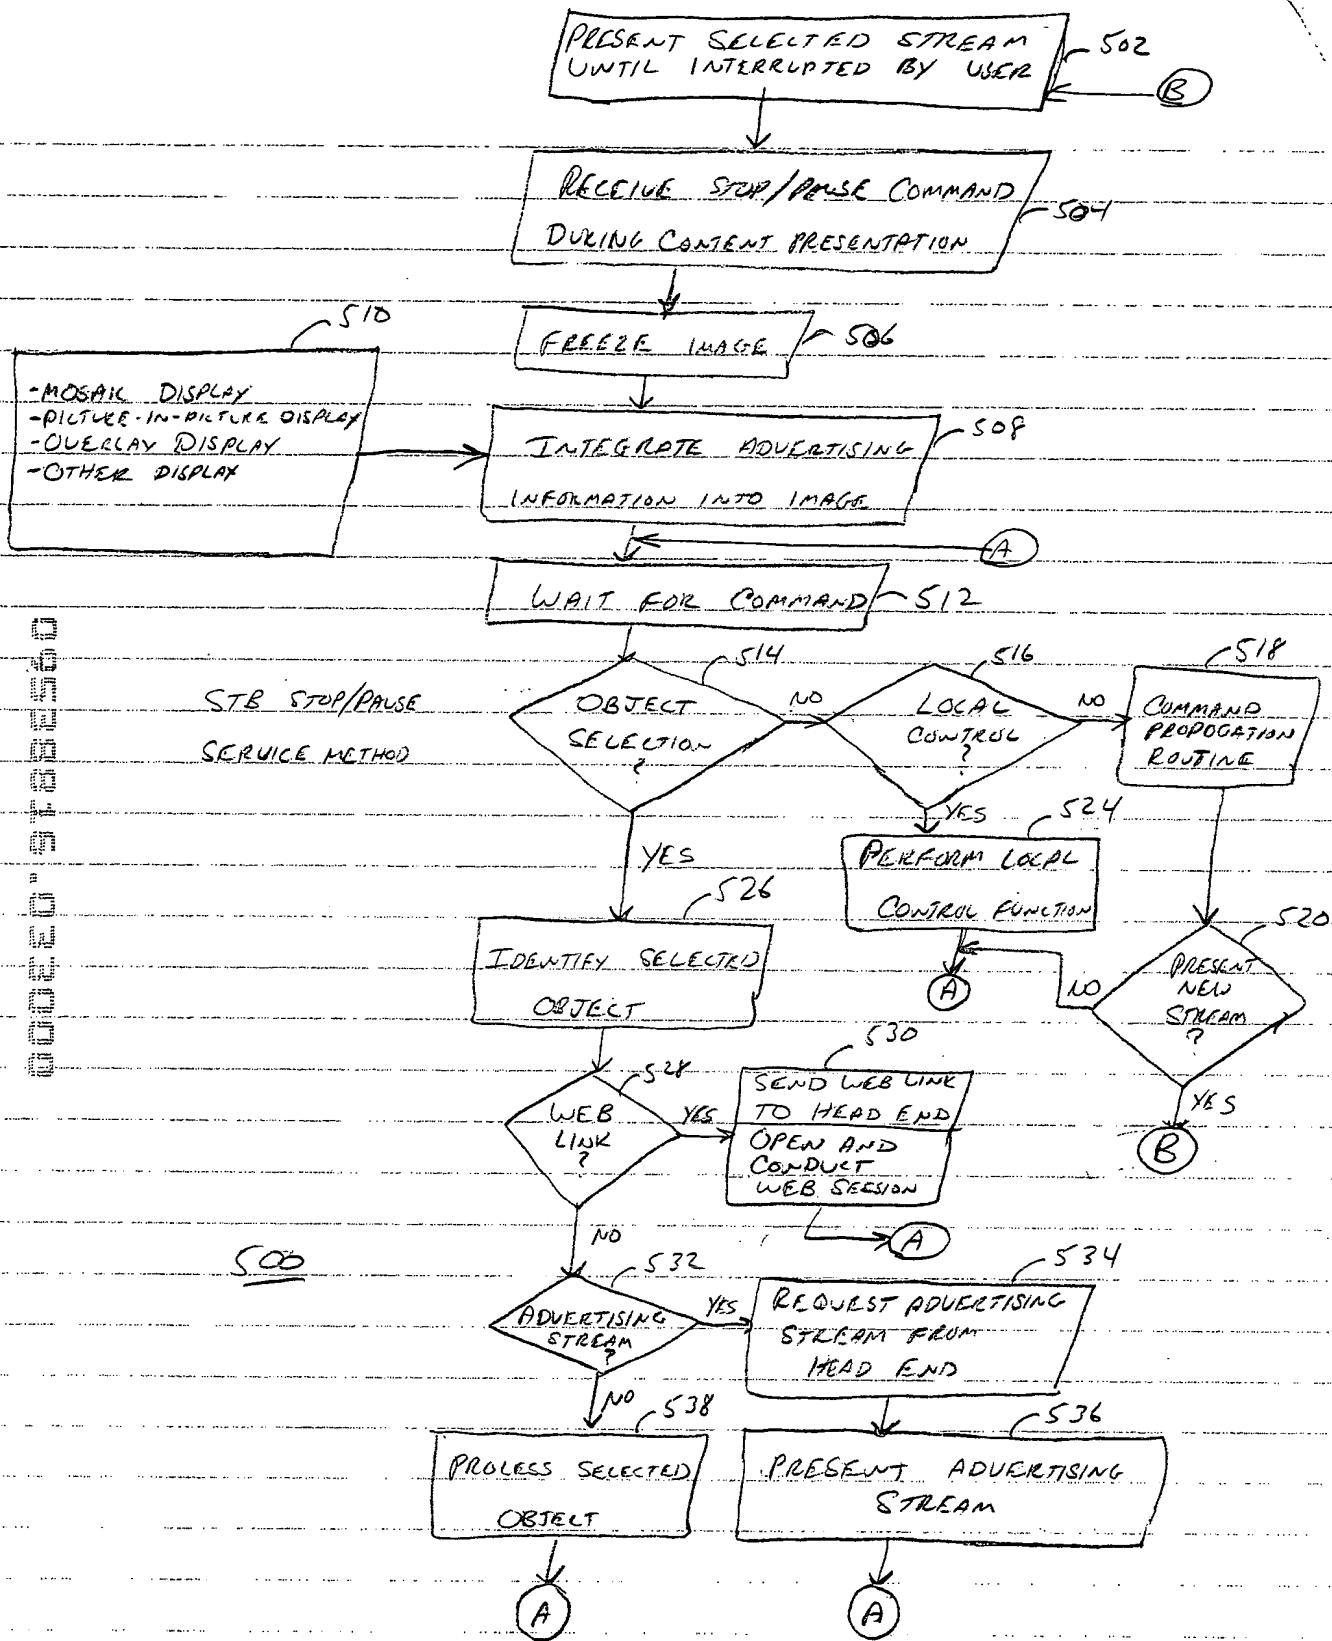 PRESENT SELECTED STREAM
UNTIL INTERRUPTED BY USER
502
B
RECEIVE STOP/PAUSE COMMAND
DURING CONTENT PRESENTATION
504
510
FREEZE IMAGE
506
-MOSAIC DISPLAY
-PICTURE-IN-PICTURE DISPLAY
-OVERLAY DISPLAY
-OTHER DISPLAY
INTEGRATE ADVERTISING
INFORMATION INTO IMAGE
508
A
WAIT FOR COMMAND
512
STB STOP/PAUSE
SERVICE METHOD
514
OBJECT
SELECTION
?
NO
516
LOCAL
CONTROL
?
NO
518
COMMAND
PROPOGATION
ROUTINE
YES
YES
524
PERFORM LOCAL
CONTROL FUNCTION
A
520
PRESENT
NEW
STREAM
?
NO
YES
B
526
IDENTIFY SELECTED
OBJECT
528
WEB
LINK
?
YES
530
SEND WEB LINK
TO HEAD END
OPEN AND
CONDUCT
WEB SESSION
A
NO
500
532
ADVERTISING
STREAM
?
YES
534
REQUEST ADVERTISING
STREAM FROM
HEAD END
NO
538
PROCESS SELECTED
OBJECT
A
536
PRESENT ADVERTISING
STREAM
A